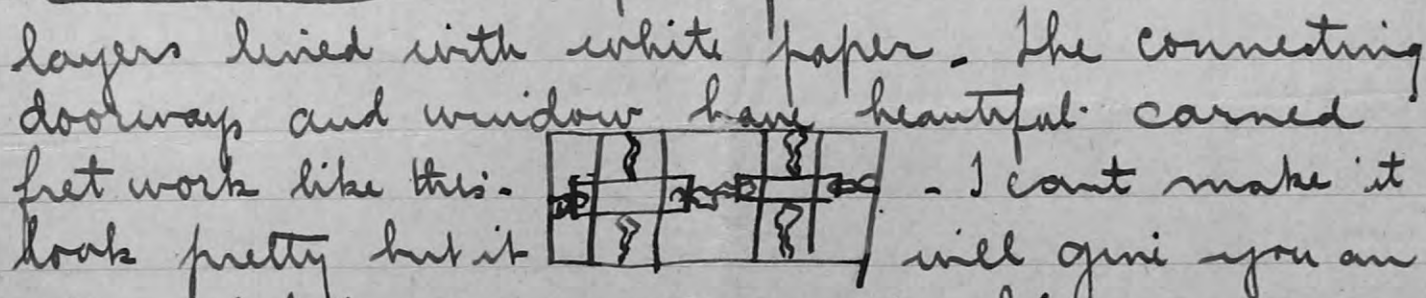 layers lined with white paper. The connecting
doorways and window have beautiful carved
fret work like this. - I cant make it
look pretty but it will give you an